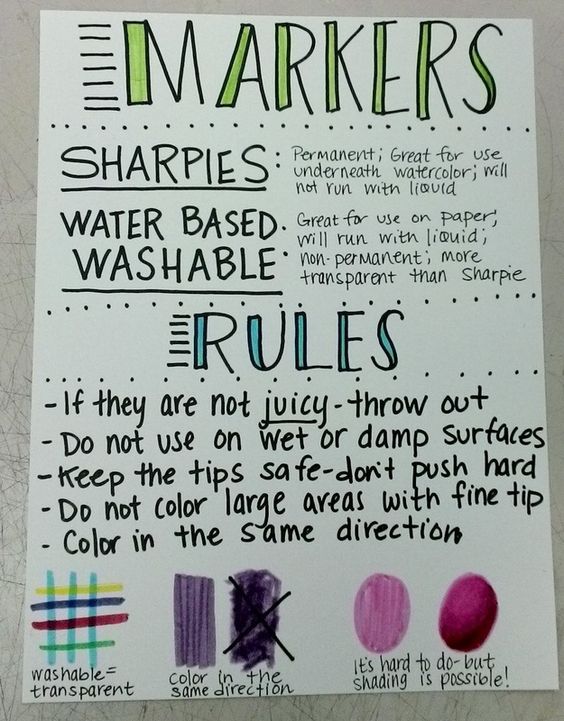 MARKERS
SHARPIES: Permanent; Great for use
underneath watercolor; will
not run with liquid
WATER BASED WASHABLE: Great for use on paper;
will run with liquid;
non-permanent; more
transparent than Sharpie
RULES
- If they are not juicy - throw out
- Do not use on wet or damp surfaces
- Keep the tips safe - don't push hard
- Do not color large areas with fine tip
- Color in the same direction
washable =
transparent
color in the
same direction
It's hard to do - but
shading is possible!